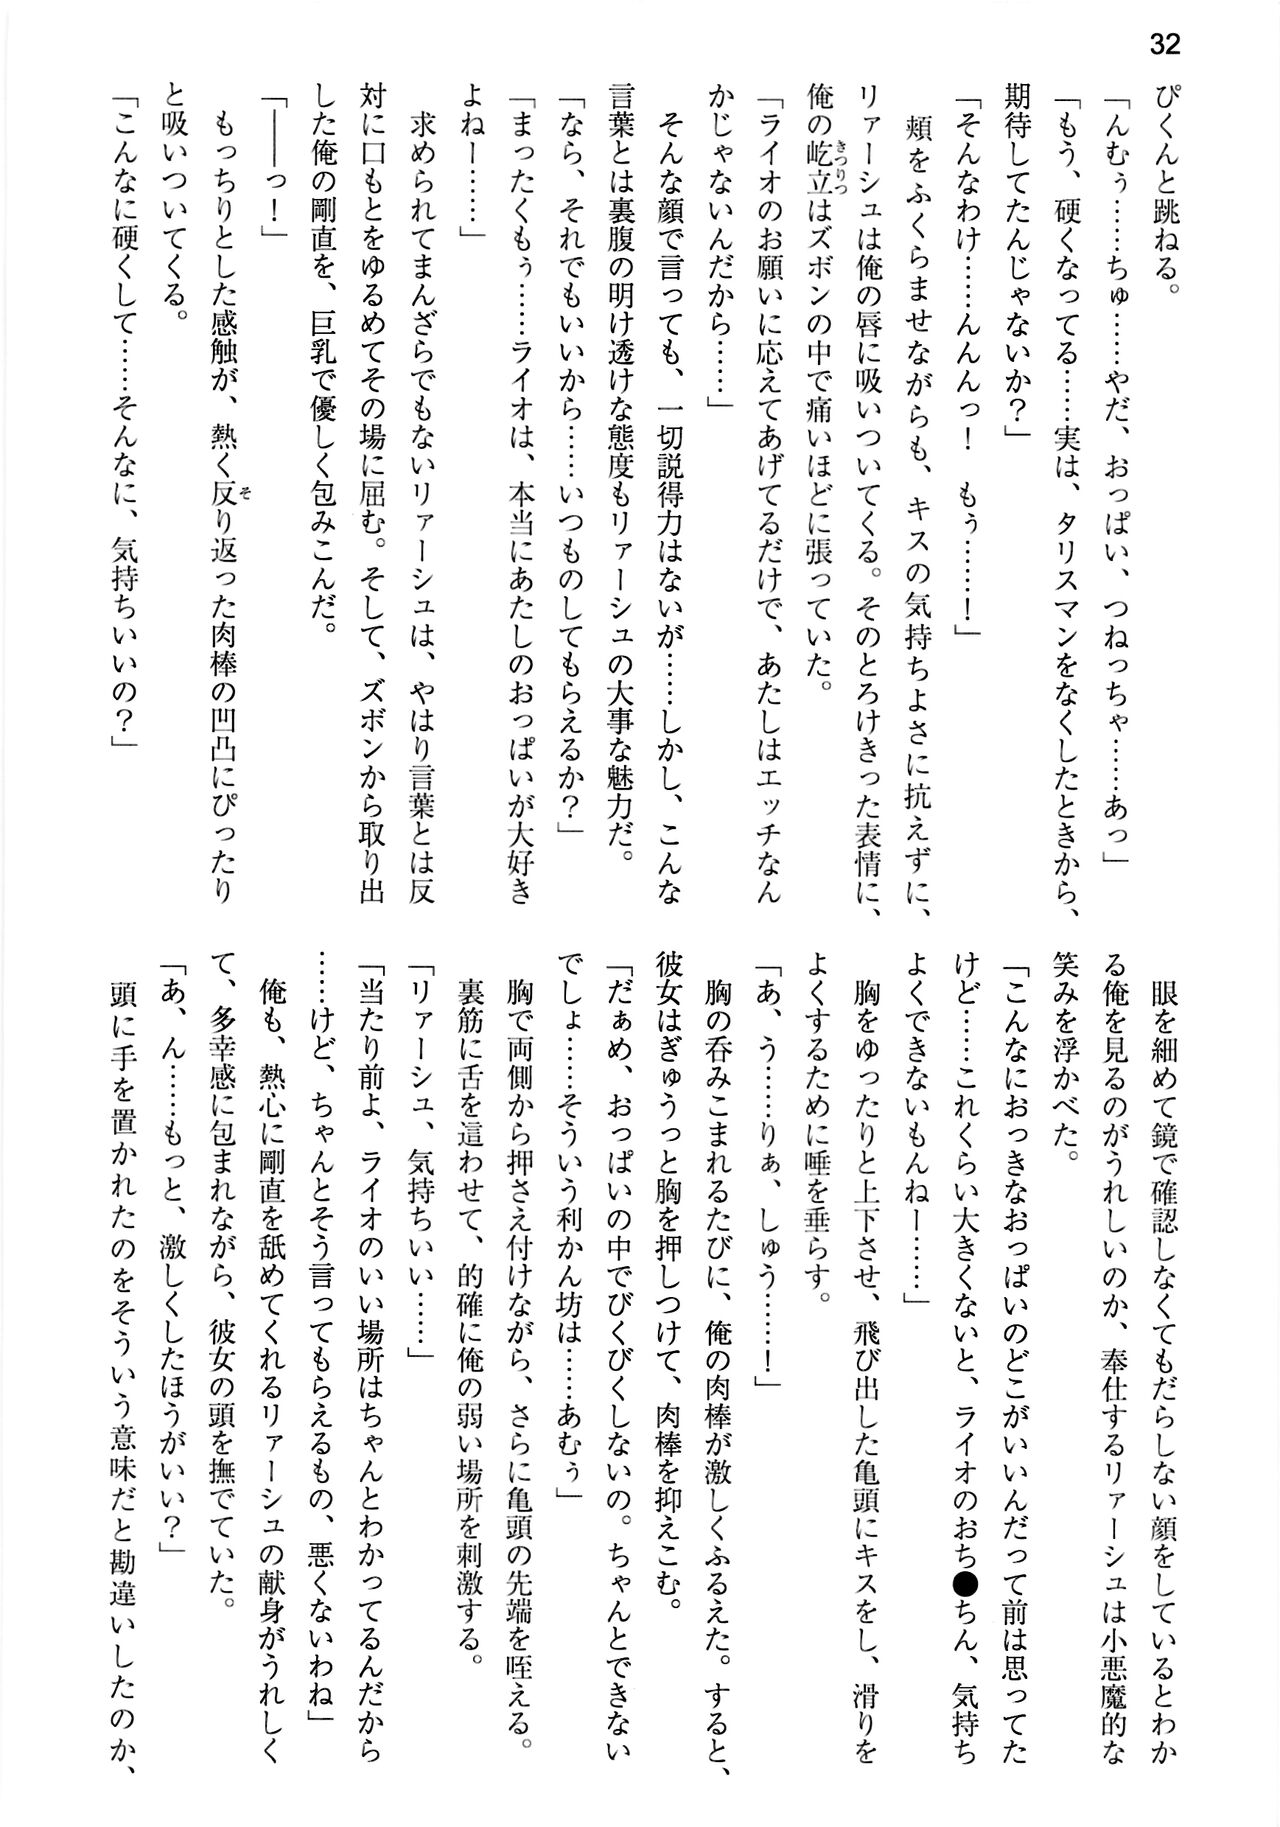 32
ぴくんと跳ねる。
「んむぅ……ちゅ……やだ、おっぱい、つねっちゃ……あっ」
「もう、硬くなってる……実は、タリスマンをなくしたときから、
期待してたんじゃないか？」
「そんなわけ……んんんっ！　もぅ……！」
　頬をふくらませながらも、キスの気持ちよさに抗えずに、
リァーシュは俺の唇に吸いついてくる。そのとろけきった表情に、
俺の屹立はズボンの中で痛いほどに張っていた。
「ライオのお願いに応えてあげてるだけで、あたしはエッチなん
かじゃないんだから……」
　そんな顔で言っても、一切説得力はないが……しかし、こんな
言葉とは裏腹の明け透けな態度もリァーシュの大事な魅力だ。
「なら、それでもいいから……いつものしてもらえるか？」
「まったくもぅ……ライオは、本当にあたしのおっぱいが大好き
よねー……」
　求められてまんざらでもないリァーシュは、やはり言葉とは反
対に口もとをゆるめてその場に屈む。そして、ズボンから取り出
した俺の剛直を、巨乳で優しく包みこんだ。
「――っ！」
　もっちりとした感触が、熱く反り返った肉棒の凹凸にぴったり
と吸いついてくる。
「こんなに硬くして……そんなに、気持ちいいの？」
　眼を細めて鏡で確認しなくてもだらしない顔をしているとわか
る俺を見るのがうれしいのか、奉仕するリァーシュは小悪魔的な
笑みを浮かべた。
「こんなにおっきなおっぱいのどこがいいんだって前は思ってた
けど……これくらい大きくないと、ライオのおち●ちん、気持ち
よくできないもんねー……」
　胸をゆったりと上下させ、飛び出した亀頭にキスをし、滑りを
よくするために唾を垂らす。
「あ、う……りぁ、しゅう……！」
　胸の呑みこまれるたびに、俺の肉棒が激しくふるえた。すると、
彼女はぎゅうっと胸を押しつけて、肉棒を抑えこむ。
「だぁめ、おっぱいの中でびくびくしないの。ちゃんとできない
でしょ……そういう利かん坊は……あむぅ」
　胸で両側から押さえ付けながら、さらに亀頭の先端を咥える。
　裏筋に舌を這わせて、的確に俺の弱い場所を刺激する。
「リァーシュ、気持ちいい……」
「当たり前よ、ライオのいい場所はちゃんとわかってるんだから
……けど、ちゃんとそう言ってもらえるもの、悪くないわね」
　俺も、熱心に剛直を舐めてくれるリァーシュの献身がうれしく
て、多幸感に包まれながら、彼女の頭を撫でていた。
「あ、ん……もっと、激しくしたほうがいい？」
　頭に手を置かれたのをそういう意味だと勘違いしたのか、